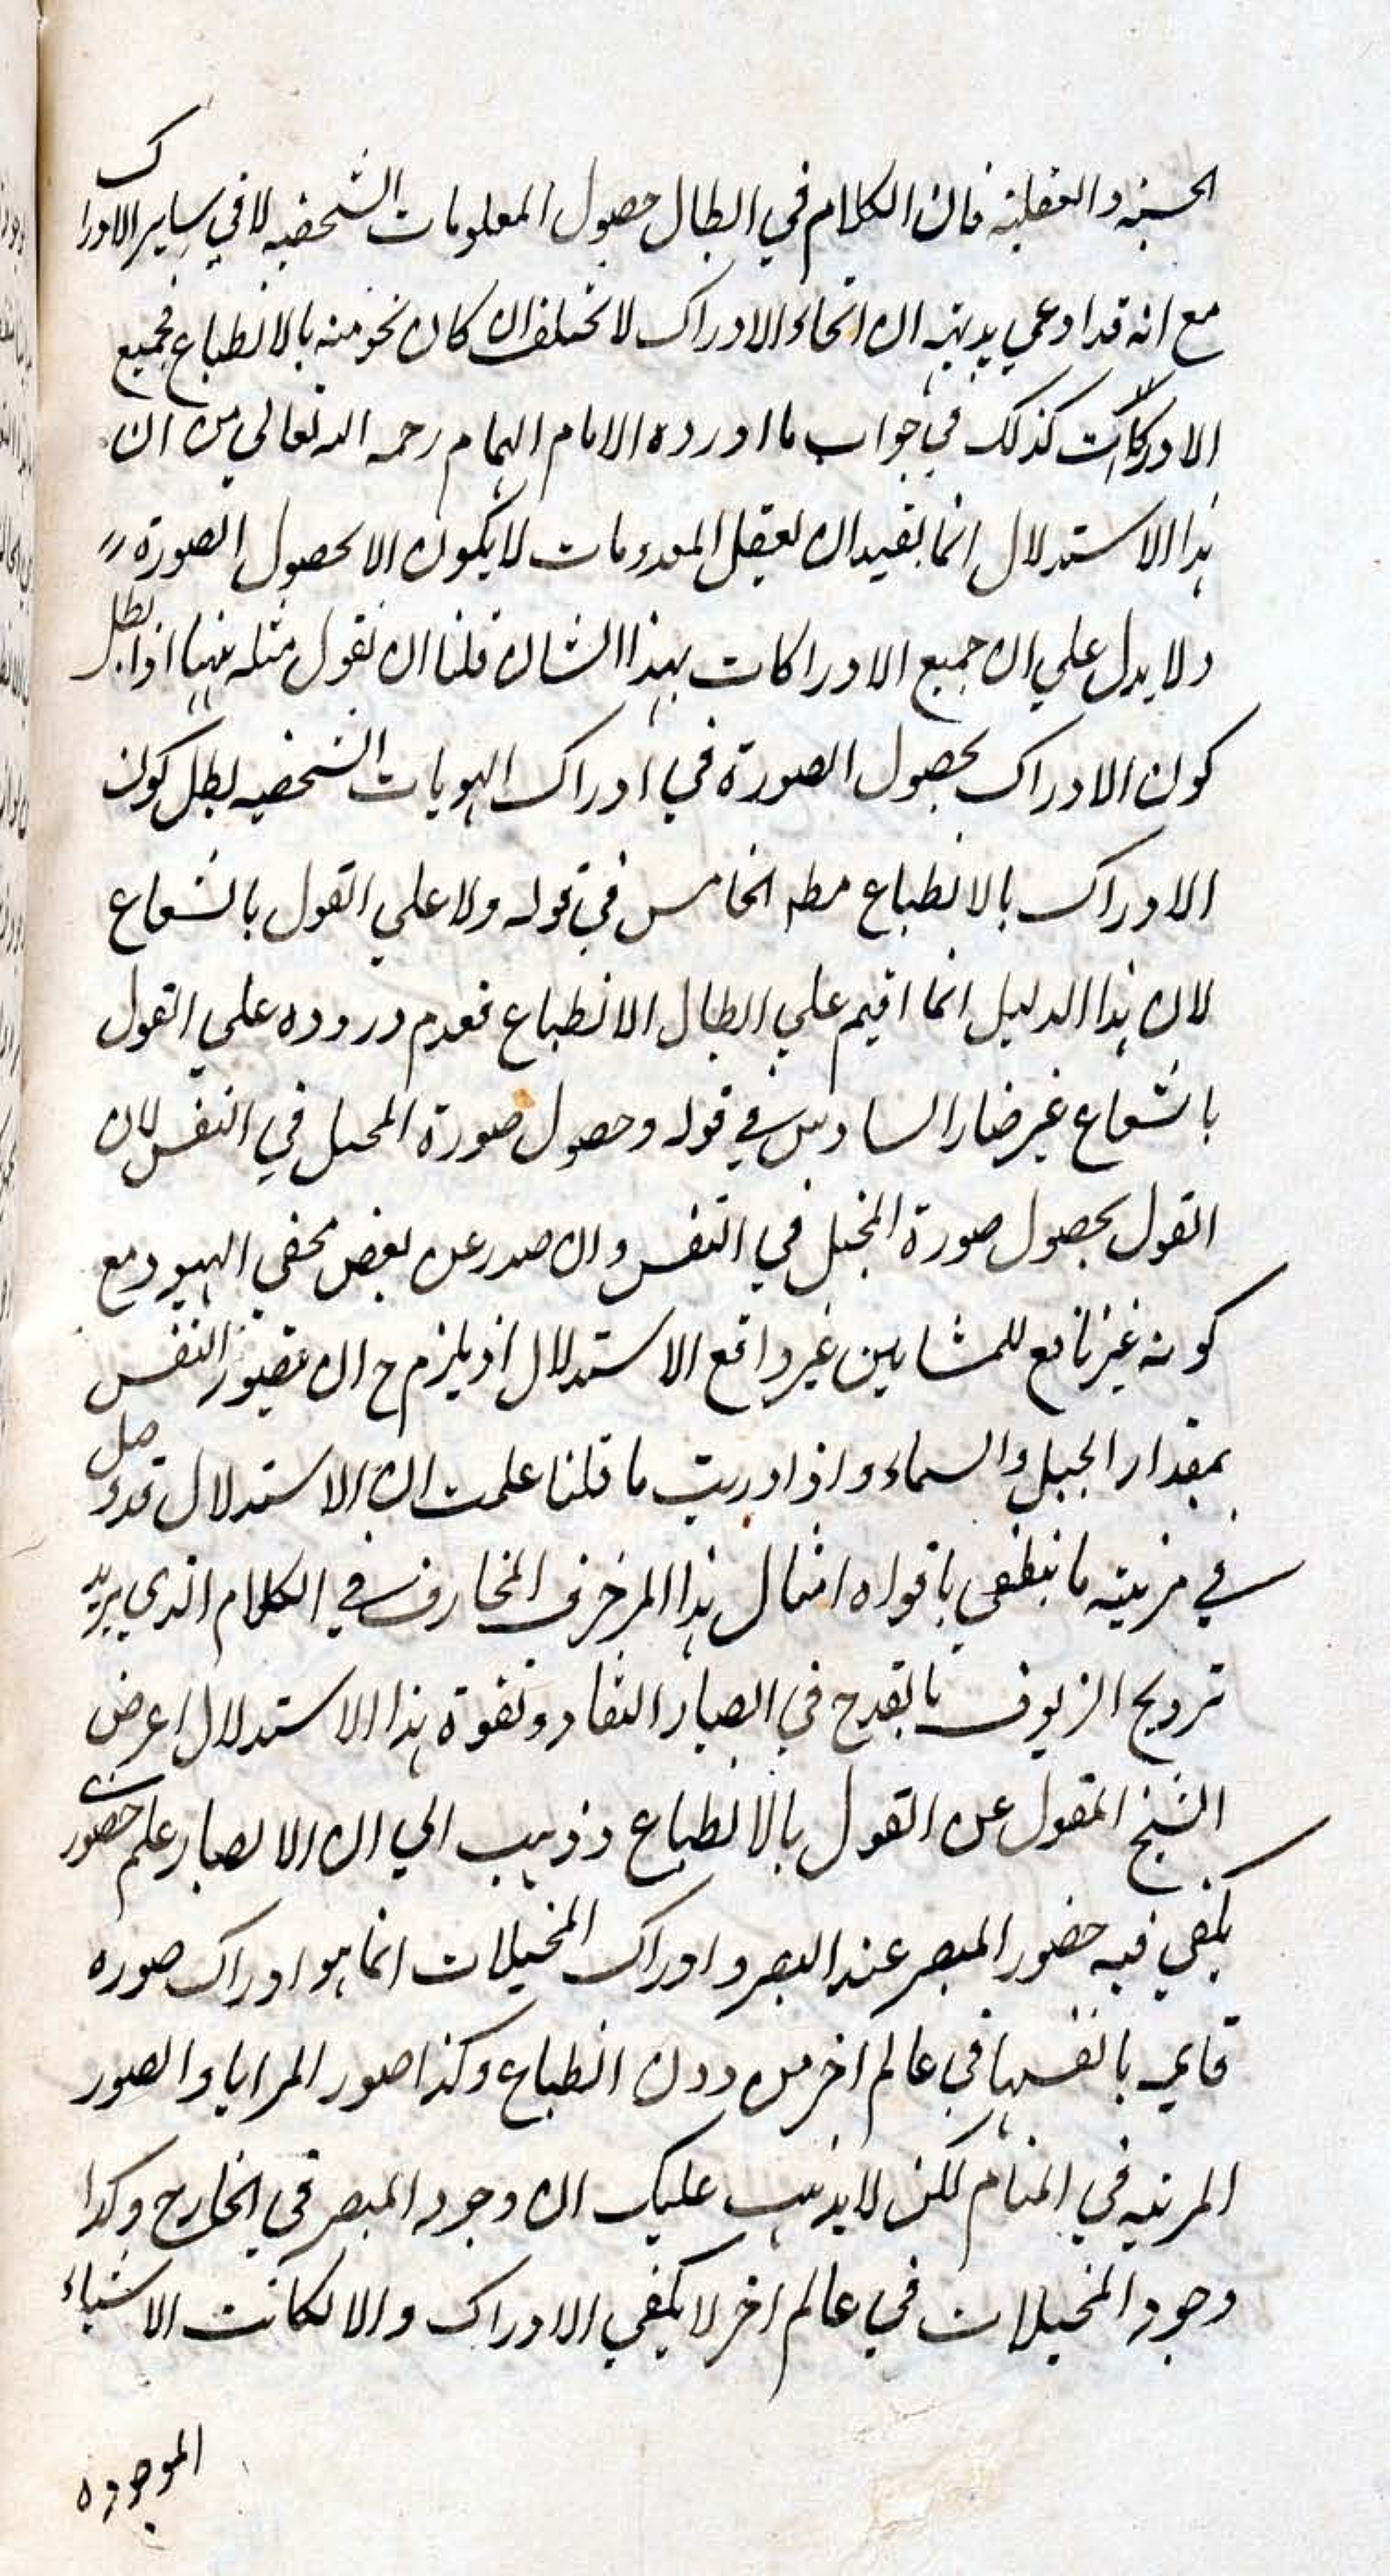 الحسية والعقلية فان الكلام في ابطال حصول المعلومات الشخصية لا في ساير الادراك
مع انه قد ادعي بديهة ان انحاء الادراك لا تختلف ان كان نحو منه بالانطباع فجميع
الادراكات كذلك في جواب ما اورده الامام الهمام رحمه الله تعالي من ان
هذا الاستدلال انما يفيد ان تعقل المعدومات لا يكون الا بحصول الصورة
ولا يدل علي ان جميع الادراكات بهذا الشان فلنا ان نقول مثله ههنا اذا بطل
كون الادراك بحصول الصورة في ادراك الهويات الشخصيه بطل كون
الادراك بالانطباع مطه الخامس في قوله ولا علي القول بالشعاع
لان هذا الدليل انما اقيم علي ابطال الانطباع فعدم وروده علي القول
بالشعاع غير ضار السادس في قوله وحصول صورة المحل في النفس لان
القول بحصول صورة المخيل في النفس وان صدر عن بعض اليهود مع
كونه غير نافع للمشايين غير دافع الاستدلال اذ يلزم ح ان تصور النفس
بمقدار الجبل والسماء واذا دريت ما قلنا علمت ان الاستدلال قد وصل
في مرتبته ما ينطفي بافواه امثال هذا المزخرف المخارف في الكلام الذي يريد
ترويج الزيوف بالقدح في ابصار النقاد ولقوة هذا الاستدلال اعرض
الشيخ المقول عن القول بالانطباع وذهب الي ان الابصار علم حضوري
يكفي فيه حضور المبصر عند البصر وادراك المخيلات انما هو ادراك صوره
قايمه بانفسها في عالم اخر من دون انطباع وكذا صور المرايا والصور
المرئيه في المنام لكن لا يذهب عليك ان وجود المبصر في الخارج وكذا
وجود المخيلات في عالم اخر لا يكفي الادراك والا لكانت الاشياء
الموجوده